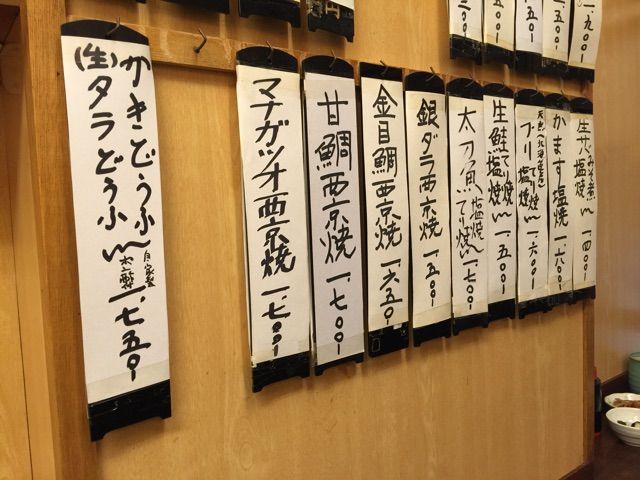 かきどうふ
(生)タラどうふ
自家製
木の芽煮
一、七五〇
マナガツオ西京焼 一、七〇〇
甘鯛西京焼 一、七〇〇
金目鯛西京焼 一、六五〇
銀ダラ西京焼 一、五〇〇
太刀魚 塩焼 てり焼 一、七〇〇
生鮭 てり焼 塩焼 一、五〇〇
天然(北海道産)
ブリ てり焼 塩焼 一、六〇〇
かます塩焼 一、六〇〇
生さば みそ煮 塩焼 一、四〇〇